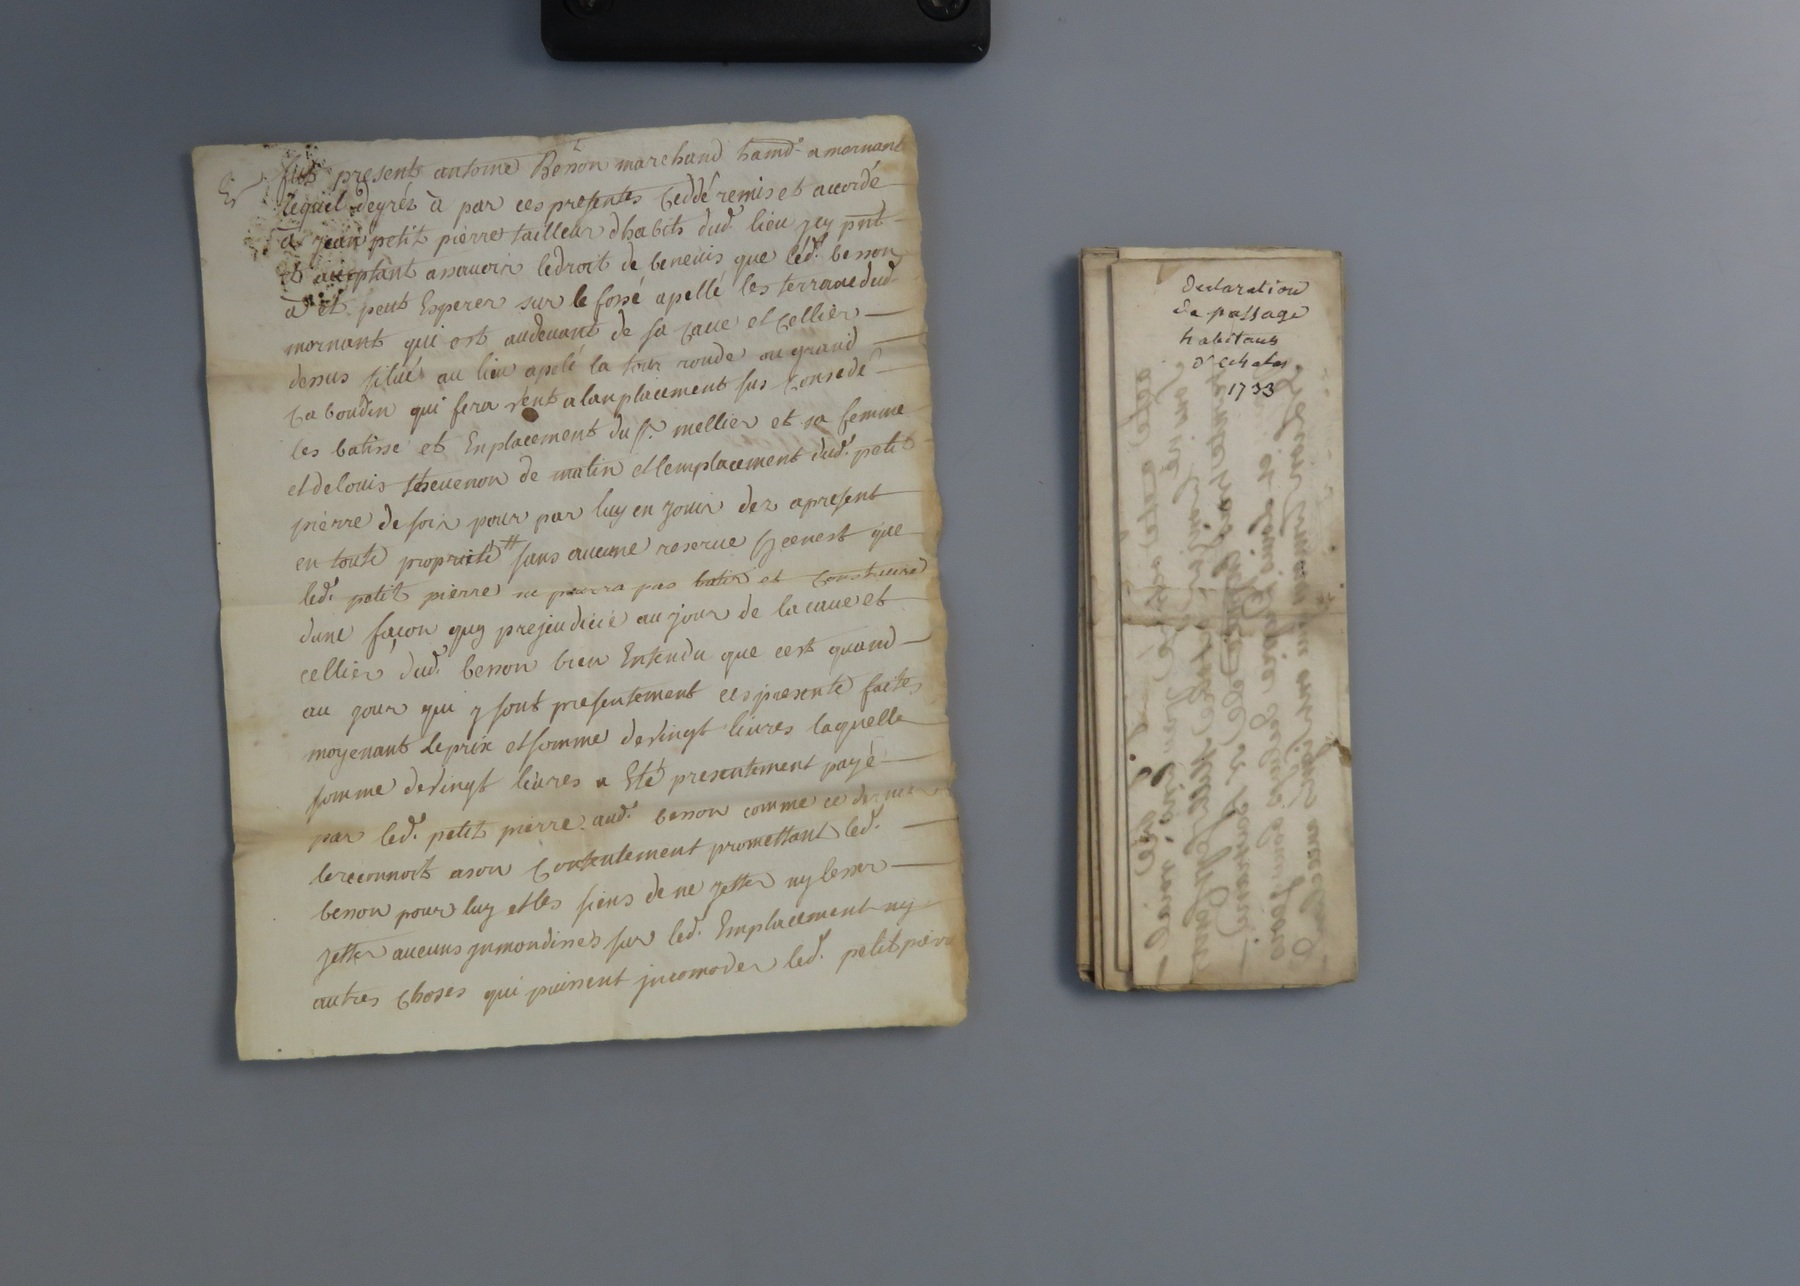 fut present antoine Besson marchand hand. a mornant
lequel degréz à par ces presentes Ceddé remis et accordé
a jean petit pierre tailleur d'habits dud. lieu jcy pnt
et aceptant assavoir ledroit de beneuis que led. besson
a et peut Esperer sur le fossé apellé les terraux dud.
mornant qui est audeuant de sa Caue et Cellier
dessus situé au lieu apelé la tour ronde ou grand
Caboudin qui sera vent a lanplacement sus Concedé
les batisse et Enplacement du Sr. mellier et sa femme
et de louis theuenon de matin et lemplacement dud. petit
pierre de soir pour par luy en jouir dez apresent
en toute proprieté sans aucune reserue sy cenest que
led. petit pierre ne pourra pas batir et Construire
dune façon quy prejeudicie au jour de la caue et
cellier dud. besson bien Entendu que cest quand
au jour qui y sont presentement ces presente faites
moyenant le prix et somme de vingt liures laquelle
somme de vingt liures a Eté presentement payé
par led. petit pierre aud. besson comme ce dernier
le reconnoit a son Contentement promettant led.
besson pour luy et les siens de ne jetter ny lesser
jetter aucuns jnmondisses sur led. Emplacement ny
autres Choses qui puissent jncomoder led. petit pierre
Declaration
de passage
habitants
d'Echalas
1733